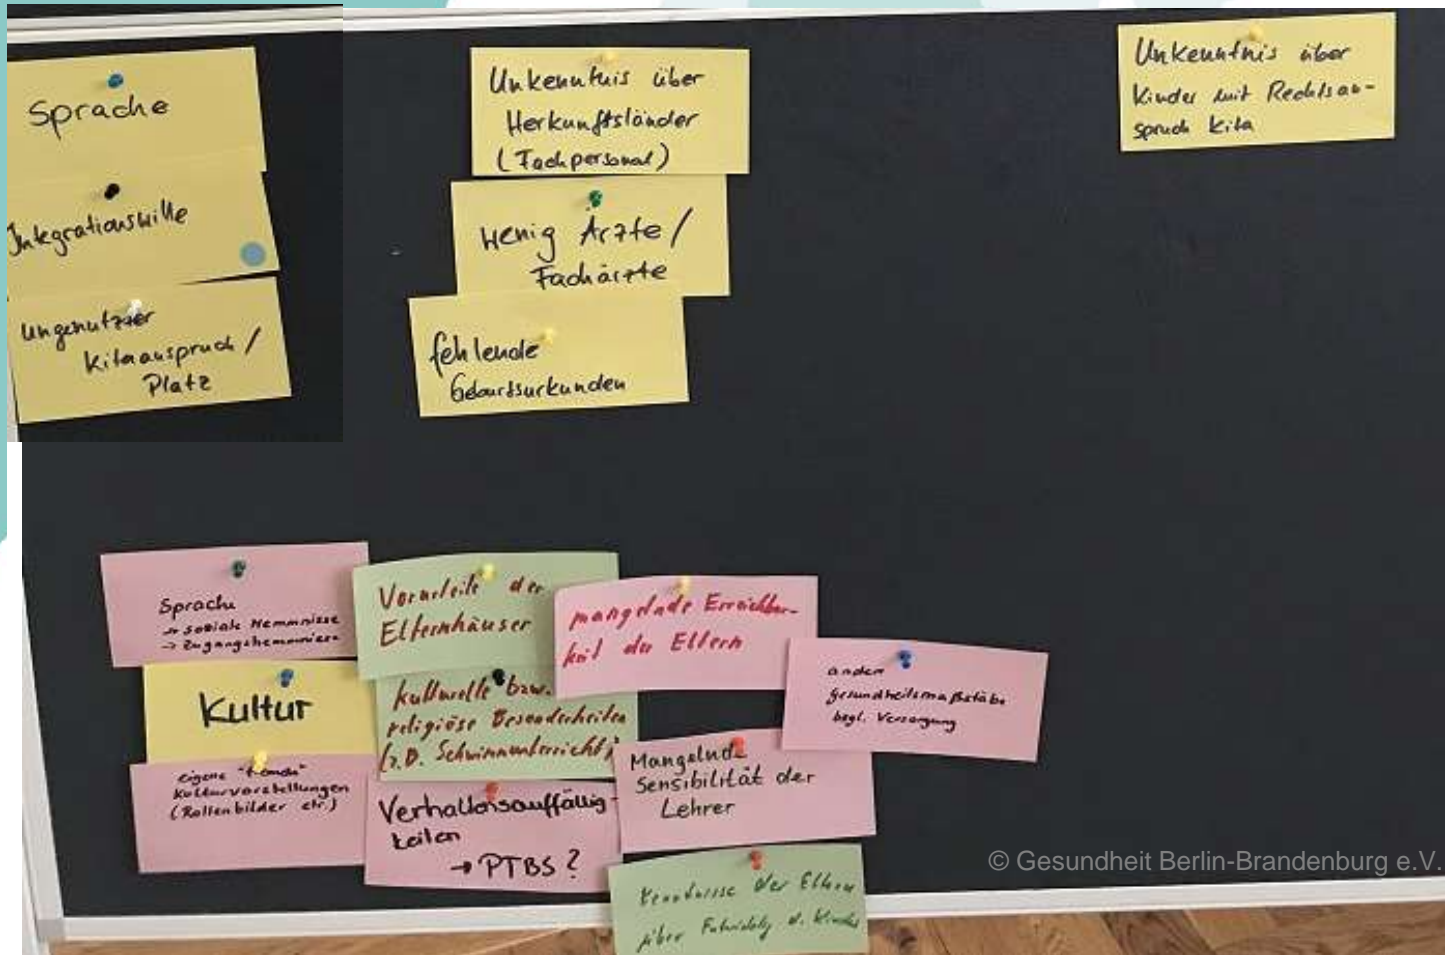 Sprache
Integrationswille
ungenutzter
Kitaanspruch /
Platz
Unkenntnis über
Herkunftsländer
(Fachpersonal)
wenig Ärzte /
Fachärzte
fehlende
Geburtsurkunden
Unkenntnis über
Kinder mit Rechtsan-
spruch Kita
Sprache
→ soziale Hemmnisse
→ Zugangshemmnisse
Kultur
eigene "fremde"
Kulturvorstellungen
(Rollenbilder etc.)
Vorurteile der
Elternhäuser
kulturelle bzw.
religiöse Besonderheiten
(z.B. Schwimmunterricht)
Verhaltensauffällig-
keiten
→ PTBS?
mangelnde Erreichbar-
keit der Eltern
Mangelnde
Sensibilität der
Lehrer
andere
Gesundheitsmaßstäbe
bzgl. Versorgung
Kenntnisse der Eltern
über d. Kindes
© Gesundheit Berlin-Brandenburg e.V.